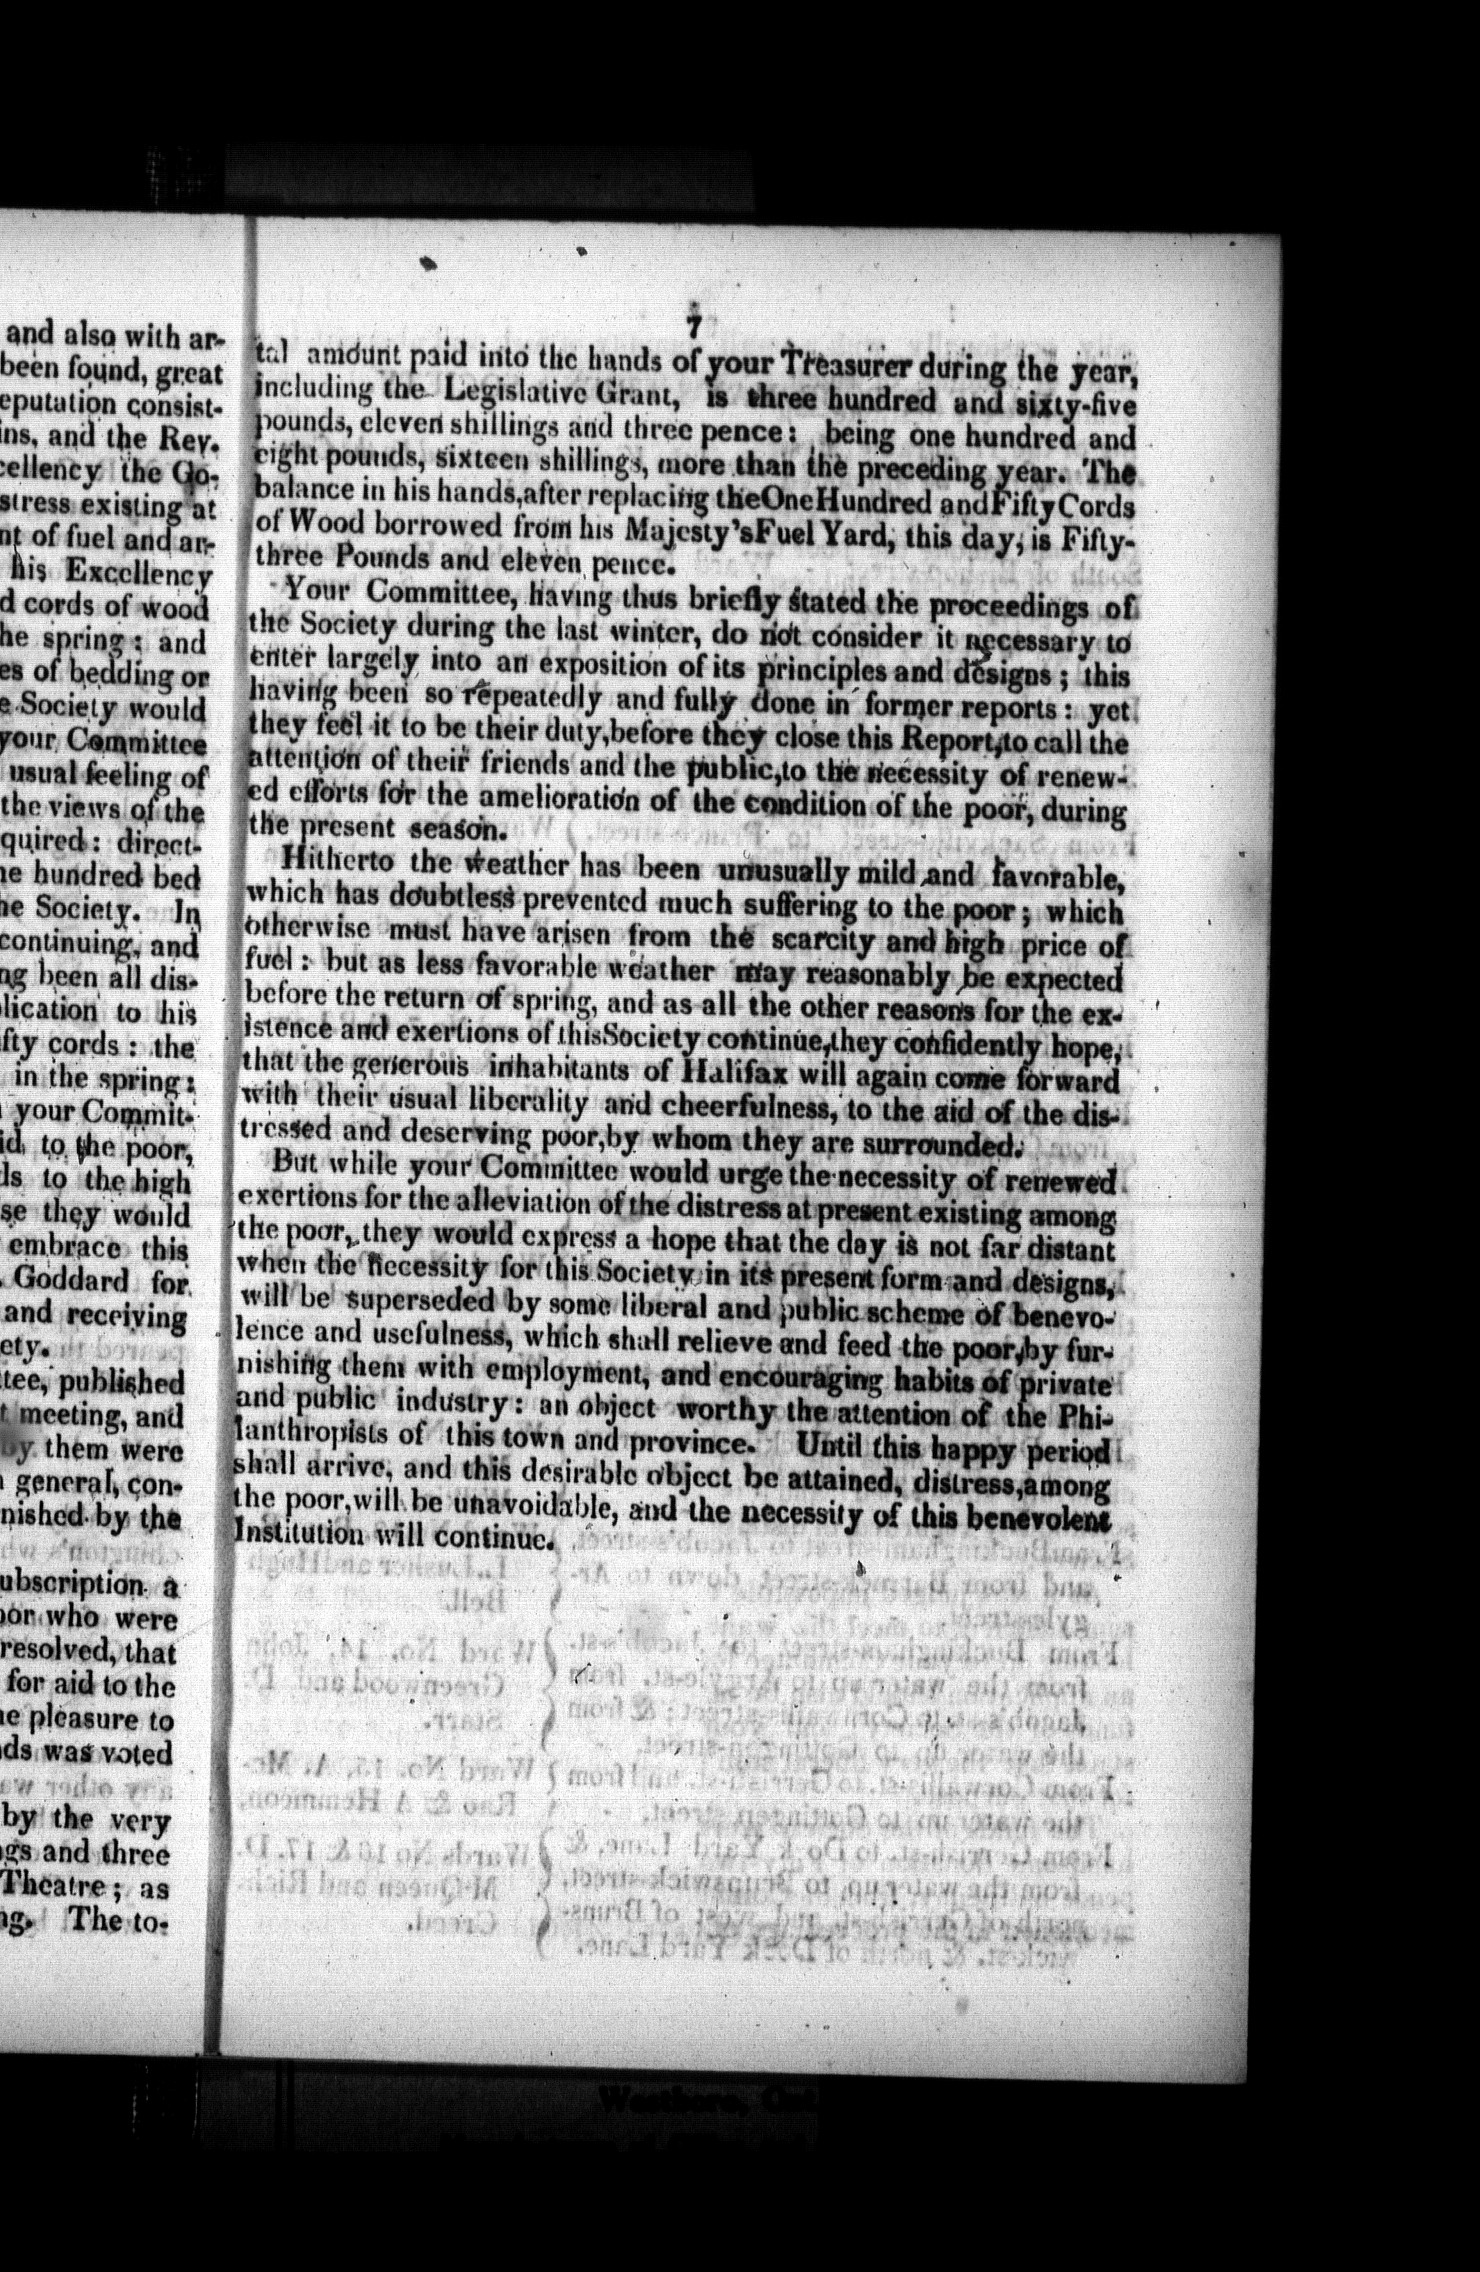 and also with ar-
been found, great
eputation consist-
ins, and the Rev.
cellency the Go-
stress existing at
nt of fuel and ar-
his Excellency
d cords of wood
he spring; and
es of bedding or
e Society would
your Committee
usual feeling of
the views of the
quired: direct-
ne hundred bed
he Society. In
continuing, and
ng been all dis-
plication to his
fty cords: the
in the spring:
your Commit-
id to the poor,
ls to the high
se they would
embrace this
Goddard for
and receiving
ety.
tee, published
t meeting, and
by them were
general, con-
nished by the
ubscription a
oor who were
resolved, that
for aid to the
ne pleasure to
nds was voted
by the very
ngs and three
Theatre; as
ng. The to-
7
tal amount paid into the hands of your Treasurer during the year,
including the Legislative Grant, is three hundred and sixty-five
pounds, eleven shillings and three pence: being one hundred and
eight pounds, sixteen shillings, more than the preceding year. The
balance in his hands,after replacing theOneHundred andFiftyCords
of Wood borrowed from his Majesty'sFuel Yard, this day, is Fifty-
three Pounds and eleven pence.
Your Committee, having thus briefly stated the proceedings of
the Society during the last winter, do not consider it necessary to
enter largely into an exposition of its principles and designs; this
having been so repeatedly and fully done in former reports: yet
they feel it to be their duty,before they close this Report,to call the
attention of their friends and the public,to the necessity of renew-
ed efforts for the amelioration of the condition of the poor, during
the present season.
Hitherto the weather has been unusually mild and favorable,
which has doubtless prevented much suffering to the poor; which
otherwise must have arisen from the scarcity and high price of
fuel: but as less favorable weather may reasonably be expected
before the return of spring, and as all the other reasons for the ex-
istence and exertions of thisSociety continue,they confidently hope,
that the generous inhabitants of Halifax will again come forward
with their usual liberality and cheerfulness, to the aid of the dis-
tressed and deserving poor,by whom they are surrounded.
But while your Committee would urge the necessity of renewed
exertions for the alleviation of the distress at present existing among
the poor, they would express a hope that the day is not far distant
when the necessity for this Society in its present form and designs,
will be superseded by some liberal and public scheme of benevo-
lence and usefulness, which shall relieve and feed the poor,by fur-
nishing them with employment, and encouraging habits of private
and public industry: an object worthy the attention of the Phi-
lanthropists of this town and province. Until this happy period
shall arrive, and this desirable object be attained, distress,among
the poor,will be unavoidable, and the necessity of this benevolent
Institution will continue.